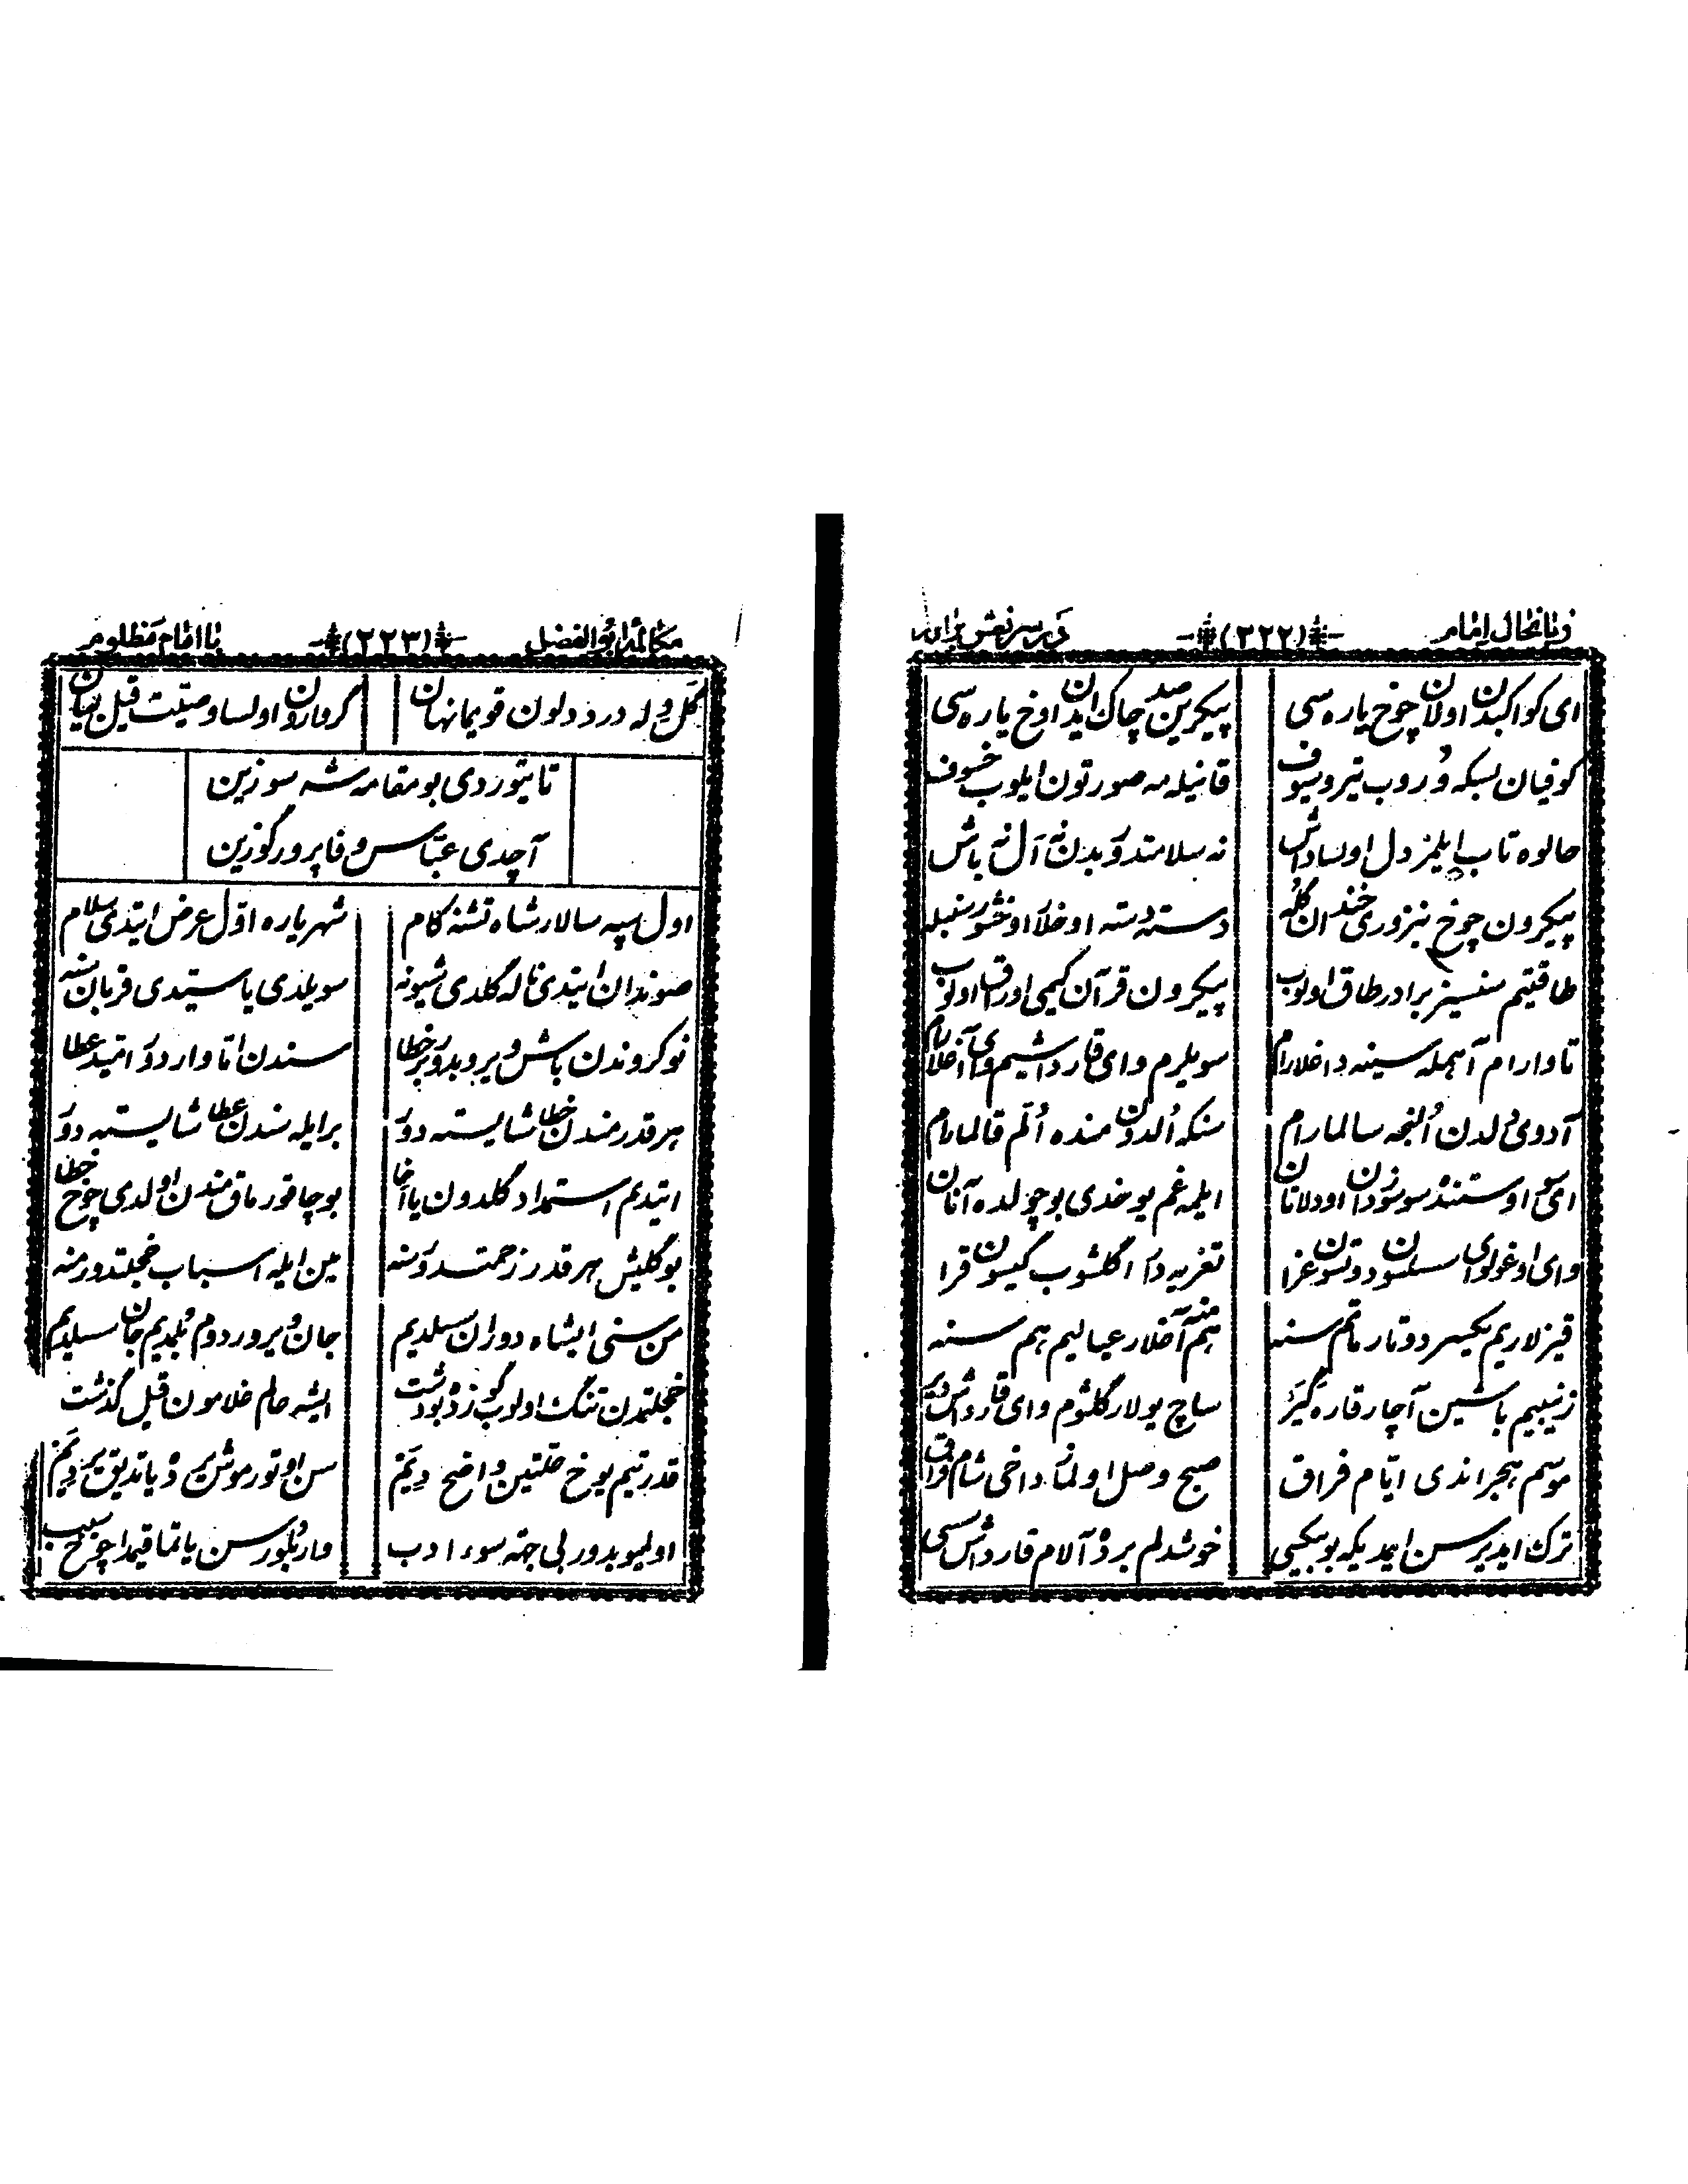 زبانحال امام (٢٢٢) در سر نعش برادر
ای کواکبدن اولان چوخ یاره سی پیکرین صد چاک ایدن اوخ یاره سی
کوفیان بسکه وروب تیر و سیوف قانیله مه صورتون ایلوب خسوف
حالوه تاب ایلمز دل اولسا داش نه سلامتدور بدن نه ال نه باش
پیکرون چوخ بنزوری خندان گله دسته دسته اوخلار اوخشور سنبله
طاقتیم سنسیز برادر طاق اولوب پیکرون قرآن کیمی اوراق اولوب
تا وارام آهیله سینه داخلارام سویلرم وای قارداشیم وای آخلارام
آدوی دلدن النجه سالمارام سنکه الدون منده الم قالمارام
ای سو اوستنده سوسوزدان اودلانان ایلمه غم یوخدی بو چولده آنان
وای اوغول وای سسلنسون دوتسون عزا تعزیه دا آگلشوب گیسون قرا
قیزلاریم یکسر دوتار ماتم سنه هم منه آخلار عیالیم هم سنه
زینبیم باشین آچار قاره گیر ساچ یولار کلثوم وای قارداش دیر
موسم هجر اندی ایام فراق صبح وصل اولماز داخی شام فراق
ترک ایدیرسن ایندیکه بو بیکسی خوشدلم بر ده آلام قارداش سسی
مکالمه ابوالفضل (٢٢٣) با امام مظلوم
گل دله درد دلون قویما نهان گر وارون اولسا وصیت قیل بیان
تا یتوردی بو مقامه شه سوزین
آچدی عباس وفاپرور گوزین
اول سپه سالار شاه تشنه کام شهریاره اول عرض ایتدی سلام
صوندان ایتدی ناله گلدی شیونه سویلدی یا سیدی قربان سنه
نوکروندن باش ویروبدور پر خطا سندن اما واردور امید عطا
هر قدر مندن خطا شایسته دور بر ایله سندن عطا شایسته دور
ایتدیم استمداد گلدون یا اخا بو چاقورماق مندن اولدی چوخ خطا
بو گلیش هر قدر زحمتدور سنه مین ایله اسباب خجلتدور منه
من سنی ایشاه دوران سسلدیم جان ویروردوم بلمدیم جان سسلدیم
خجلتمدن تنگ اولوب گوزده بو دشت ایشه عالم غلامون قیل گذشت
قدرتیم یوخ علتین واضح دیم سن اوتورموش من ده یاتدیق یر دیم
اولمیوبدور بی جهة سوء ادب وار بلورسن یاتماقیمدا چوخ سبب